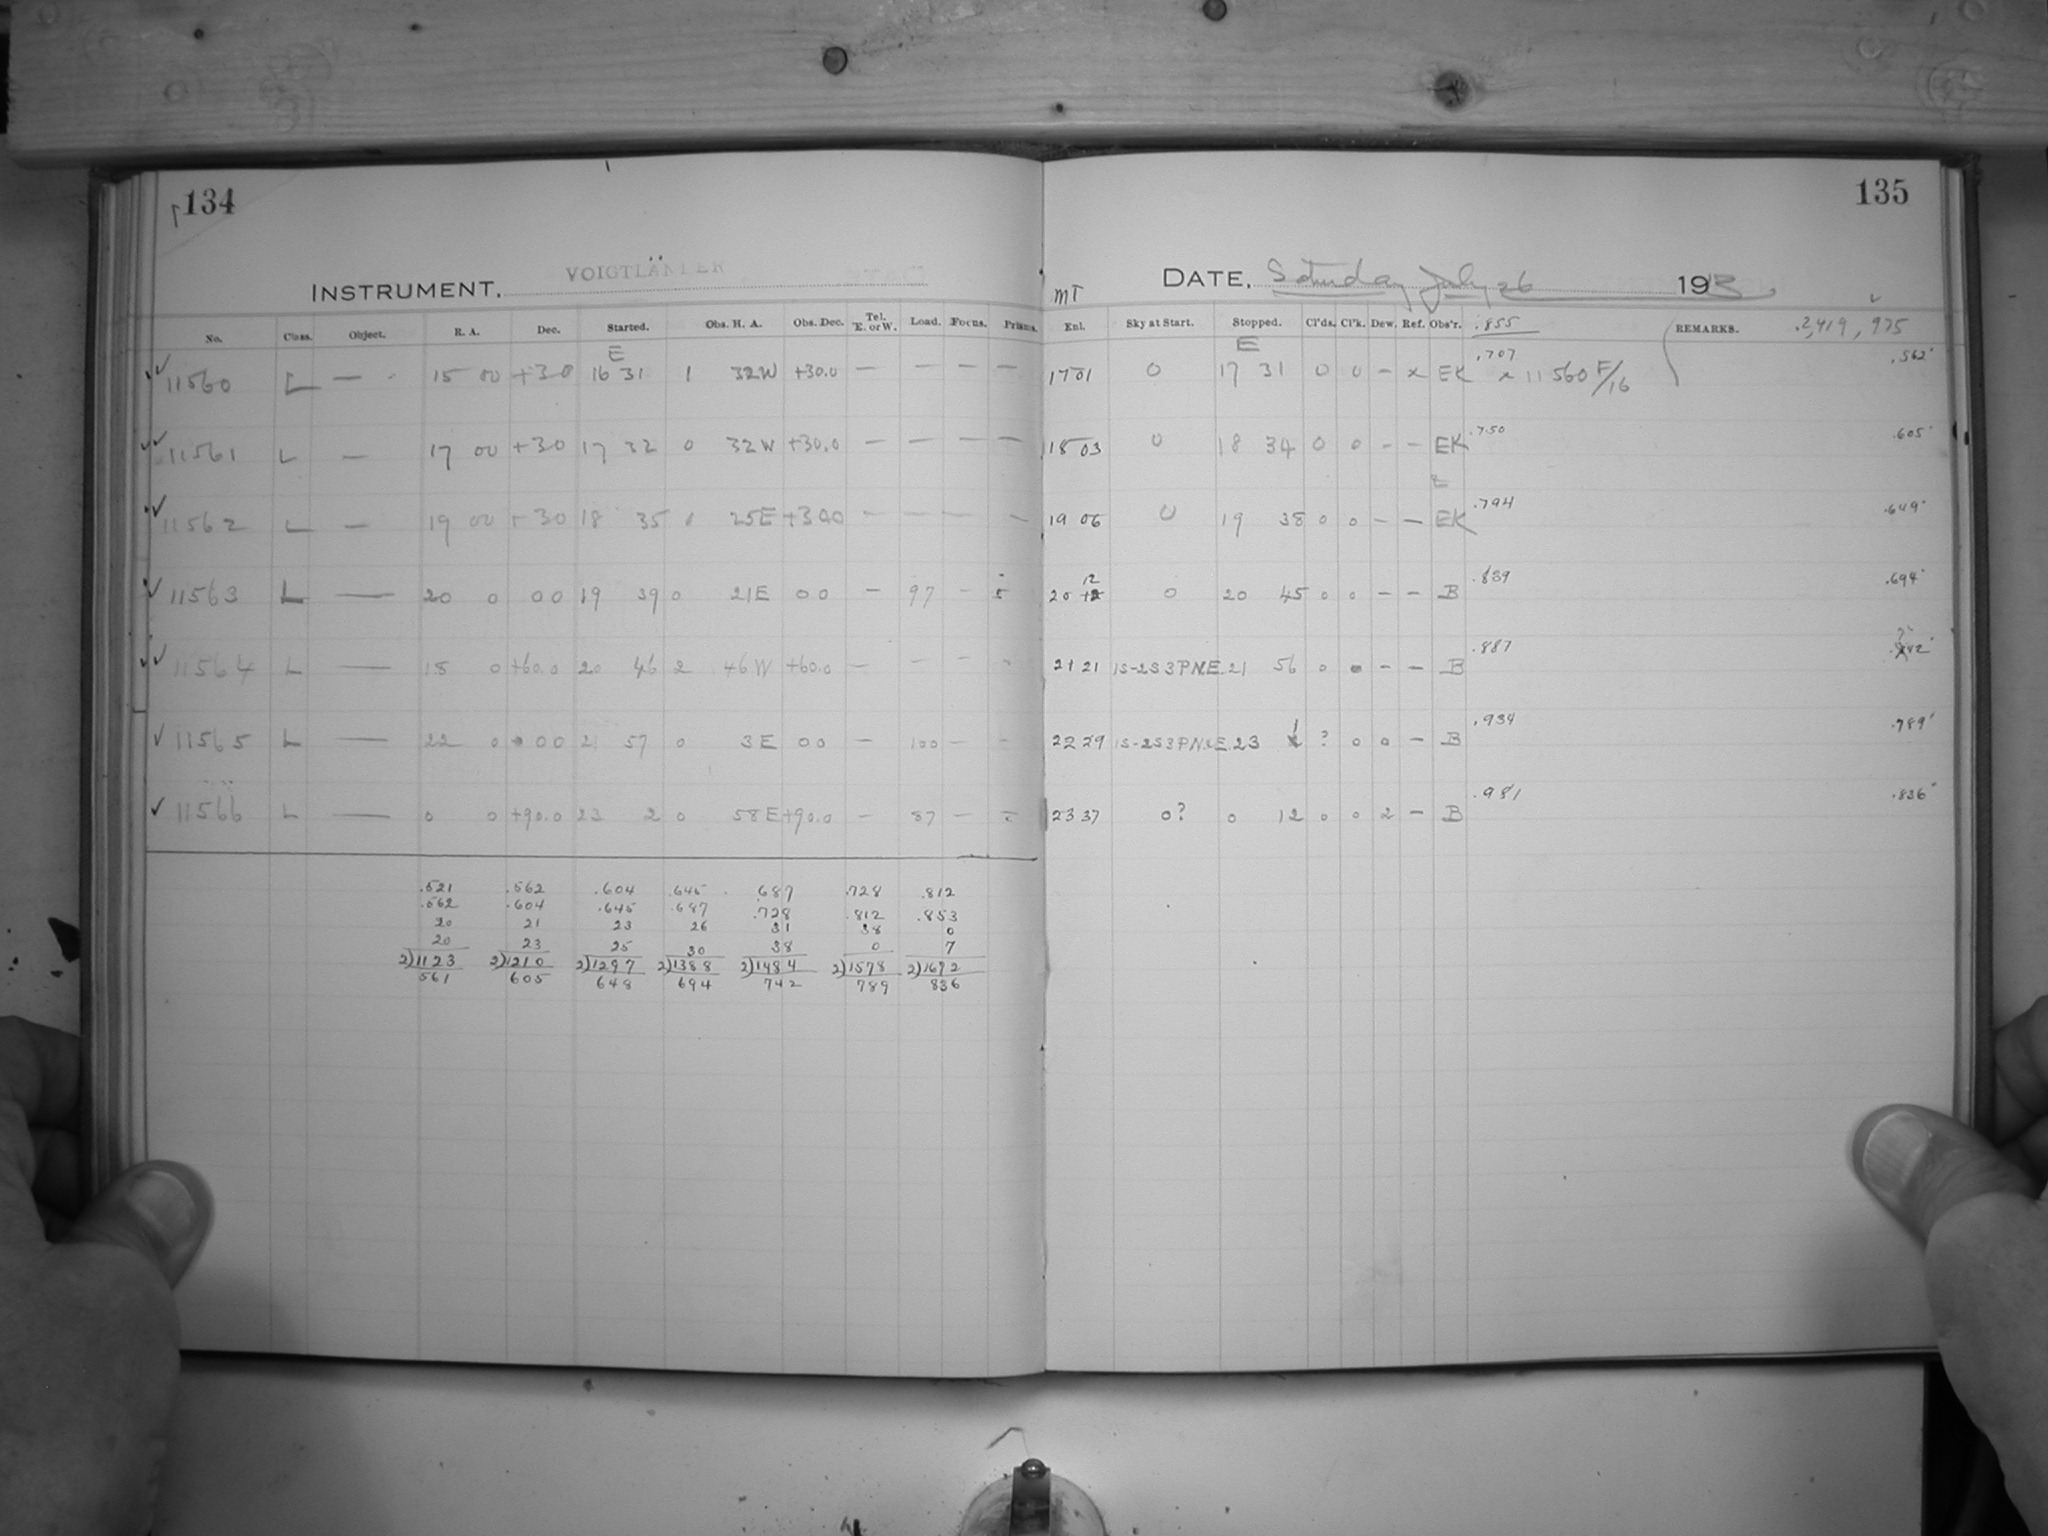 134
135
INSTRUMENT, VOIGTLÄNDER
DATE, Saturday July 26 1913
MT
No. Class. Object. R. A. Dec. Started. Obs. H. A. Obs. Dec. Tel. E. or W. Load. Focus. Prisms. Enl. Sky at Start. Stopped. Cl'ds. Cl'k. Dew. Ref. Obs'r. .855 REMARKS. 2,419,975
E E
11560 L — 15 00 +30 16 31 1 32W +30.0 — — — — 17 01 0 17 31 0 0 - x EK .707 x 11560 F/16 .562
11561 L — 17 00 +30 17 32 0 32W +30.0 — — — — 18 03 0 18 34 0 0 - - EK .750 .605
11562 L — 19 00 +30 18 35 0 25E +30.0 — — — — 19 06 0 19 38 0 0 — — EK .794 .649
11563 L — 20 0 00 19 39 0 21E 00 — 97 — 20 12 0 20 45 0 0 — — B .839 .694
11564 L — 18 0 +60.0 20 46 2 46W +60.0 — — — - 21 21 1S-2S3PN.E. 21 56 0 — — B .887 .742
11565 L — 22 0 00 21 57 0 3E 00 — 100 — - 22 29 1S-2S3PN.E. 23 1 ? 0 0 — B .934 .789
11566 L — 0 0 +90.0 23 2 0 58E +90.0 — 87 — 23 37 0? 0 12 0 0 2 — B .981 .836
.521 .562 .604 .645 .687 .728 .812
.562 .604 .645 .687 .728 .812 .853
20 21 23 26 31 38 0
20 23 25 30 38 0 7
2)1123 2)1210 2)1297 2)1388 2)1484 2)1578 2)1692
561 605 648 694 742 789 836